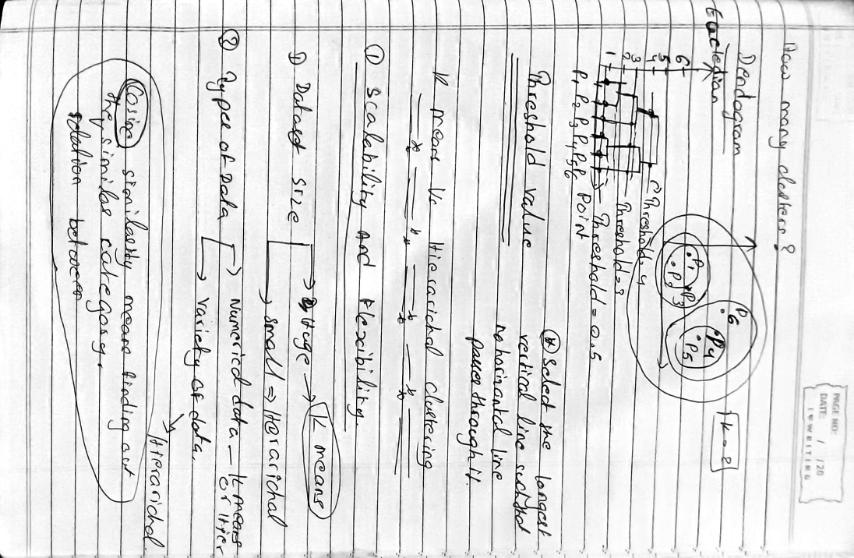 PAGE NO:
DATE: / /20
How many clusters?
Dendogram
Eucledian
6
5
4
3
2
1
P1 P2 P3 P4 P5 P6 Point
Threshold=4
Threshold=3
Threshold=0.5
P1
P2
P3
P6
P4
P5
K=2
Threshold value
* Select the longest
vertical line such that
no horizontal line
passes through it.
K means Vs Hierarichal clustering
① Scalability and flexibility.
① Dataset Size → Huge → K means
→ small → Hierarichal
② Types of Data → Numerical data – K means or Hier
→ variety of data.
→ Hierarichal
Cosine similarity means finding out
the similar category.
relation between